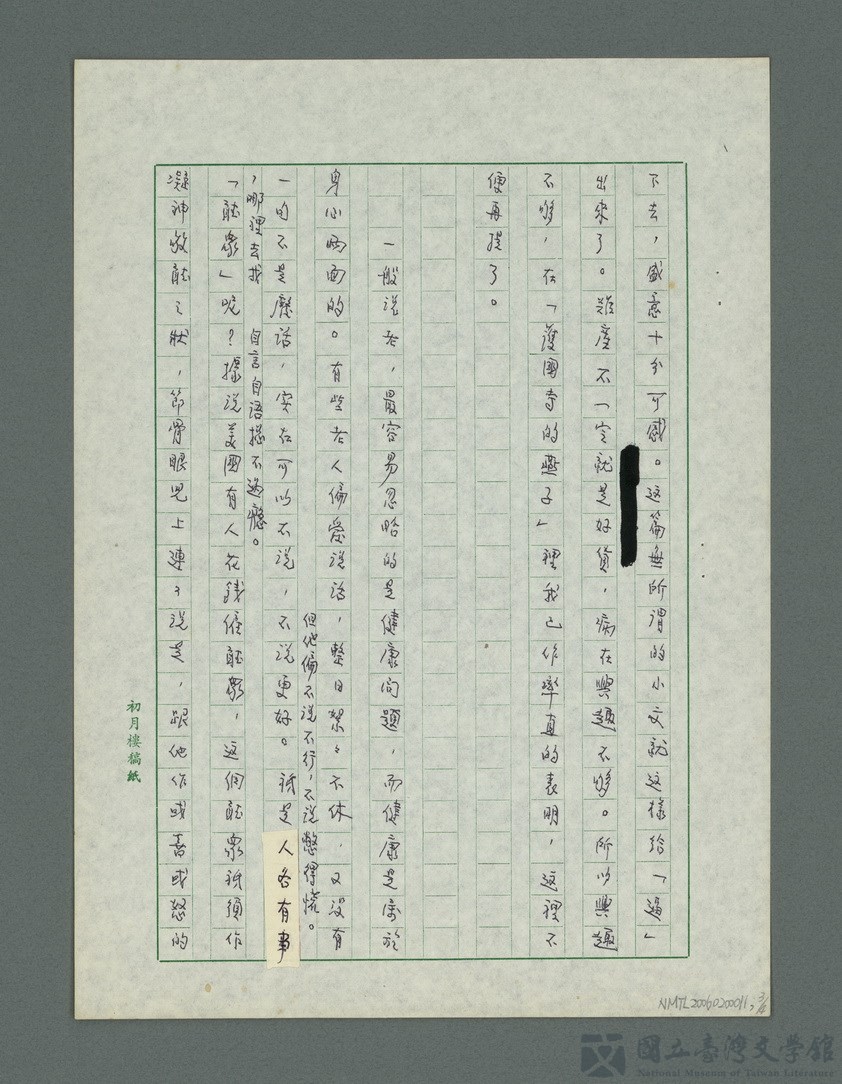 下去，盛意十分可感。这篇無所謂的小文就这樣给「逼」
出來了。難產不一定就是好貨，病在興趣不够。所以興趣
不够，在「護國寺的燕子」裡我已作率直的表明，这裡不
便再提了。
一般说老，最容易忽略的是健康问題，而健康是屬於
身心両面的。有些老人偏愛说话，整日絮々不休，又没有
但他偏不说不行，不说憋得慌。
一句不是廢话，实在可以不说，不说更好。祇是人各有事
，哪裡去找 自言自语总不過癮。
「聽衆」呢？據说美國有人花錢僱聽衆，这個聽衆祇須作
凝神傲聽之狀，節骨眼兒上連々说是，跟他作或喜或怒的
初月樓稿紙
NMTL20060200011, 3/4
國立臺灣文學館
National Museum of Taiwan Literature